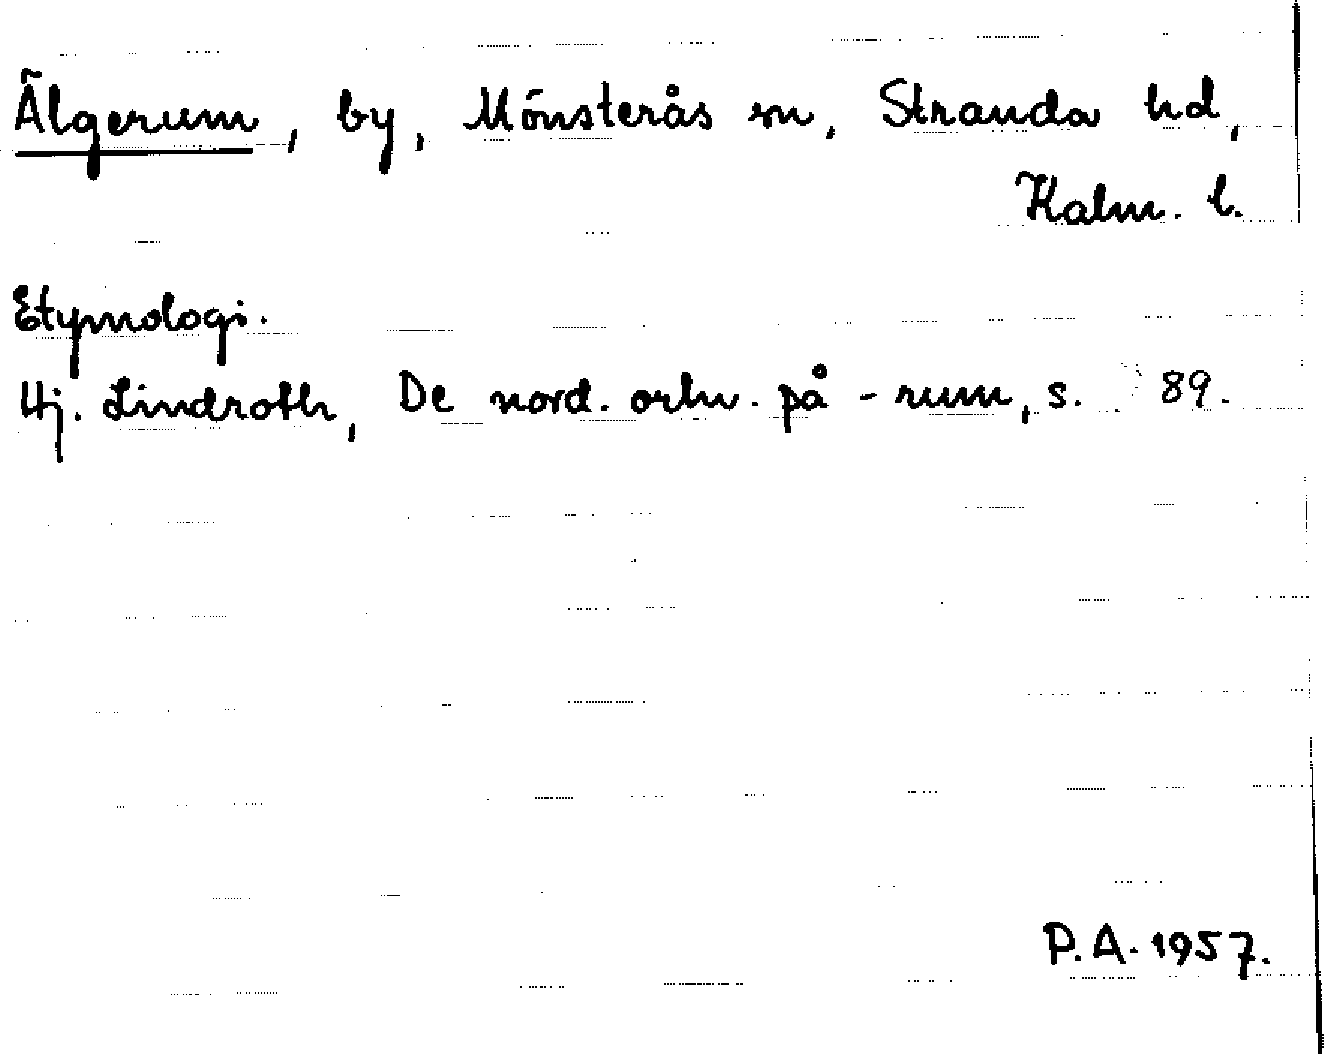 Älgerum, by, Mönsterås sn, Stranda hd,
Kalm. l.
Etymologi.
Hj. Lindroth, De nord. ortn. på -rum, s. 89.
P.A. 1957.